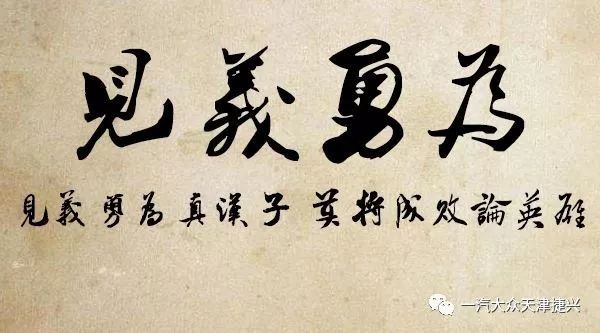 見義勇為
見義勇為真漢子 莫將成敗論英雄
一汽大众天津捷兴